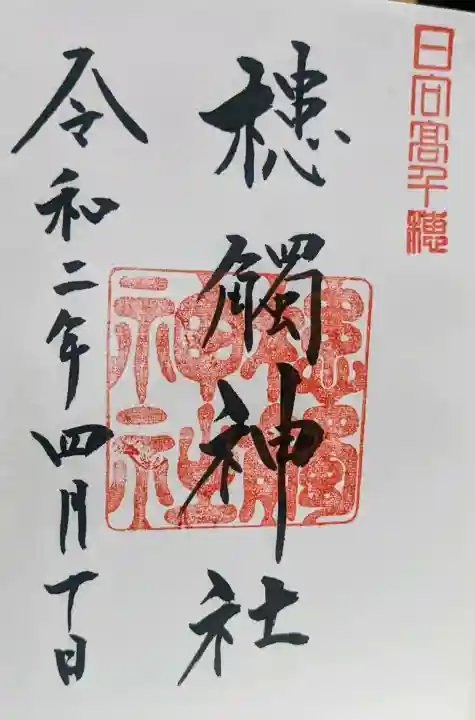 日向髙千穂
穂觸神社
穂觸神社
令和二年四月十日